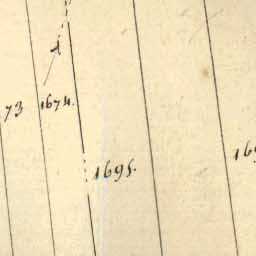 73
1674.
1695.
169